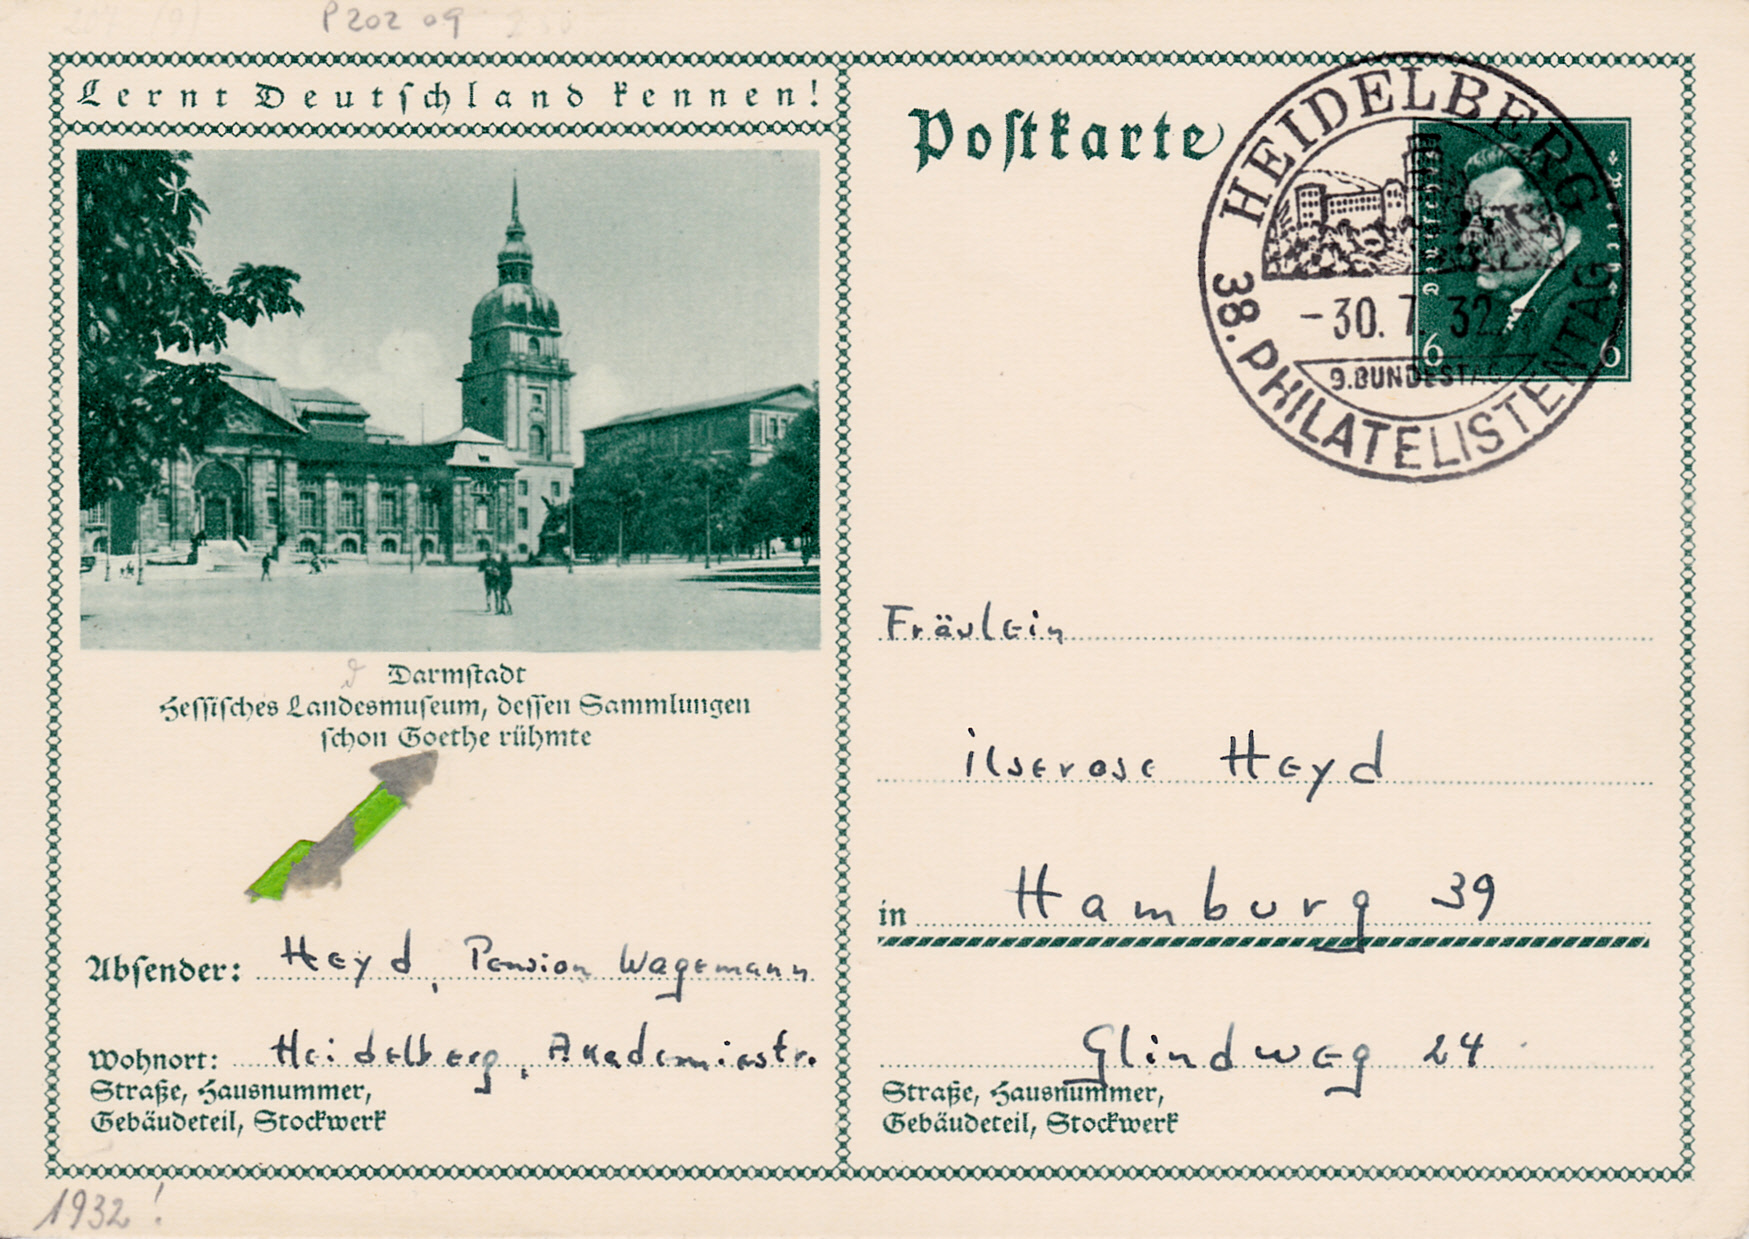 P202 09
Lernt Deutschland kennen!
Postkarte
HEIDELBERG
-30.7.32
9.BUNDESTAG
38. PHILATELISTENTAG
6 6
Darmstadt
Hessisches Landesmuseum, dessen Sammlungen
schon Goethe rühmte
Fräulein
Ilserose Heyd
in Hamburg 39
Glindweg 24
Straße, Hausnummer,
Gebäudeteil, Stockwerk
Absender: Heyd, Pension Wagemann
Wohnort: Heidelberg, Akademiestr.
Straße, Hausnummer,
Gebäudeteil, Stockwerk
1932!